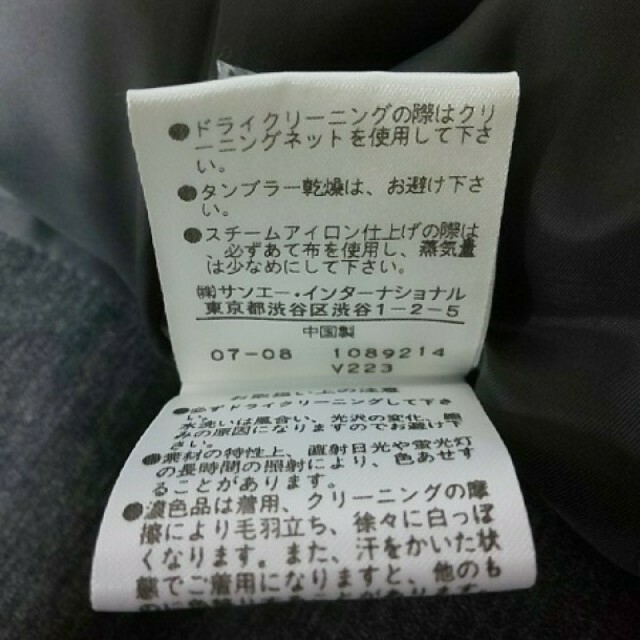 ●ドライクリーニングの際はクリ
ーニングネットを使用して下さ
い。
●タンブラー乾燥は、お避け下さ
い。
●スチームアイロン仕上げの際は
、必ずあて布を使用し、蒸気量
は少なめにして下さい。
㈱サンエー・インターナショナル
東京都渋谷区渋谷1-2-5
中国製
07-08 1089214
V223
お取扱い上の注意
●必ずドライクリーニングして下さ
い。水洗いは風合い、光沢の変化、縮
みの原因になりますのでお避け下
さい。
●素材の特性上、直射日光や蛍光灯
の長時間の照射により、色あせす
ることがあります。
●濃色品は着用、クリーニングの摩
擦により毛羽立ち、徐々に白っぽ
くなります。また、汗をかいた状
態でご着用になりますと、他のも